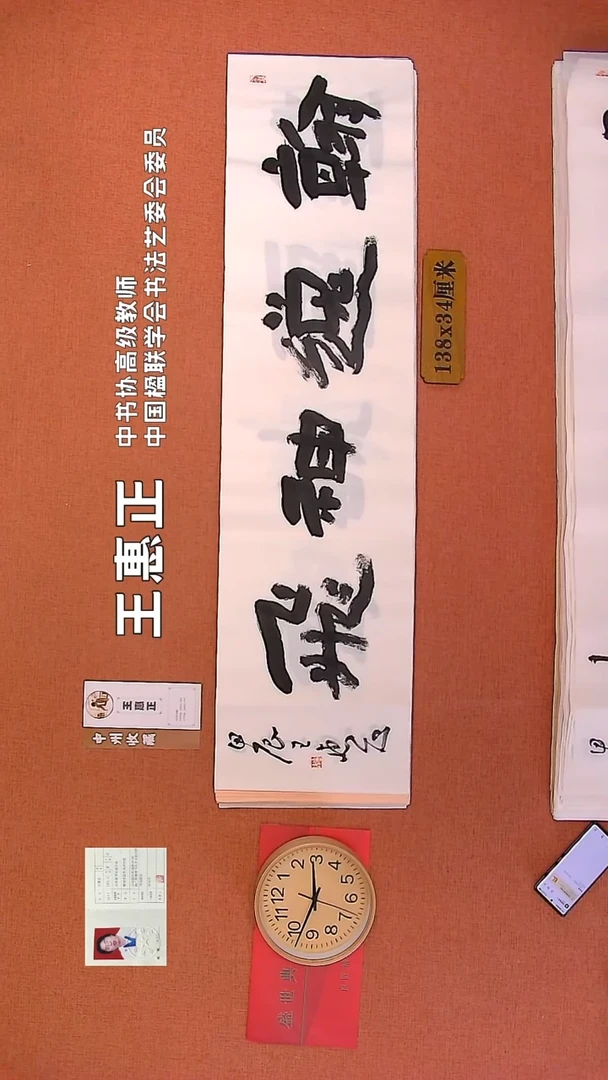 中书协高级教师
中国楹联学会书法艺委会委员
王惠正
王惠正
中州收藏
翰逸神飛
甲辰王惠正
138x34厘米
盛世典
12
1
2
3
4
5
6
7
8
9
10
11